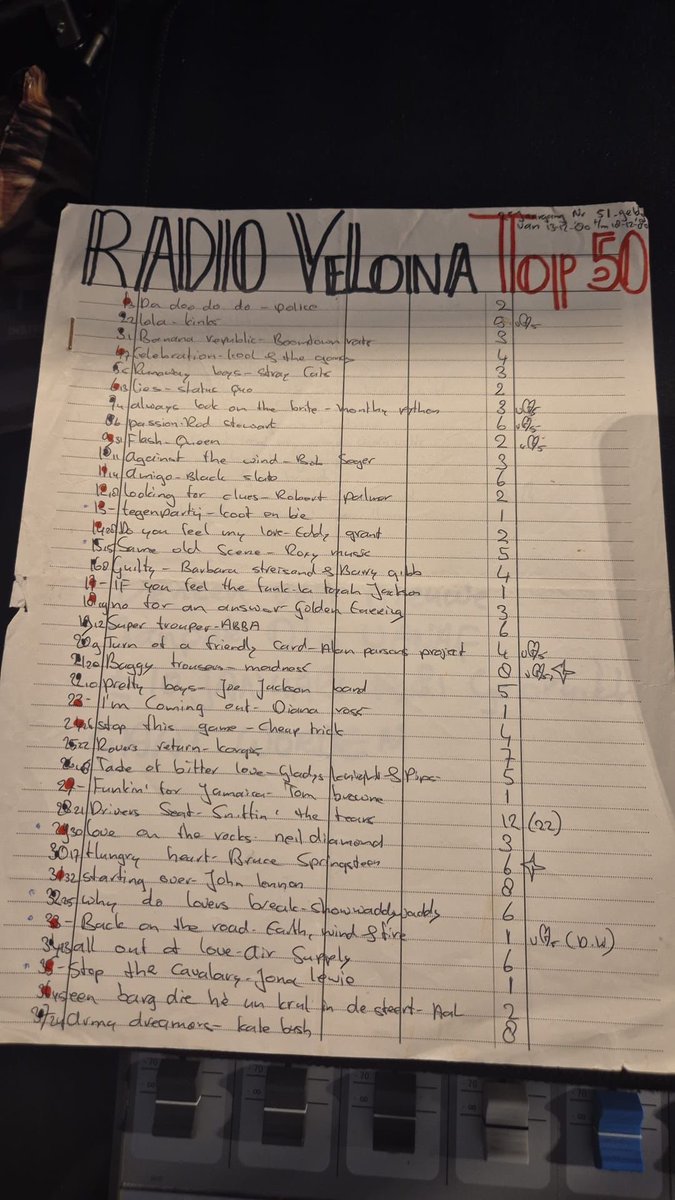 Nr 51
RADIO VELOINA TOP 50
Da doo do do - police 2
22 lola - kinks 3
31 Banana republic - Boomdown rats 3
Celebration - kool & the gang 4
Runaway boys - Stray Cats 3
lies - status quo 2
always look on the brite - monthy python 3
passion Rod Stewart 6
Flash - Queen 2
against the wind - Bob Seger 3
amigo - Black slate 6
looking for clues - Robert palmer 2
13 - tegenpartij - koot en bie 1
Do you feel my love - Eddy grant 2
1515 Same old scene - Roxy music 5
168 Guilty - Barbara streisand & Barry gibb 4
- IF you feel the funk - la toyah Jackson 1
no for an answer Golden Earring 3
1912 Super trouper - ABBA 6
209 Turn of a friendly card - Alan parsons project 4
2120 Baggy trousers - madness 8
2210 pretty boys - Joe Jackson band 5
- I'm Coming out - Diana ross 1
stop this game - Cheap trick 4
2522 Rovers return - korgis 7
Taste of bitter love - Gladys knight & Pips 5
- Funkin' for Jamaica - Tom browne 1
28.21 Drivers Seat - Sniffin' the tears 12 (22)
2930 love on the rocks - neil diamond 3
3017 Hungry heart - Bruce Springsteen 6
3132 starting over - John lennon 8
3225 why do lovers break - showwaddywaddy 6
- Back on the road - Earth, wind & fire 1 (D.W)
all out of love - air Supply 6
- Stop the Cavalary - Jona lewie 1
een barg die hè un krul in de steert - Aal 2
37/24 army dreamers - kate bush 8